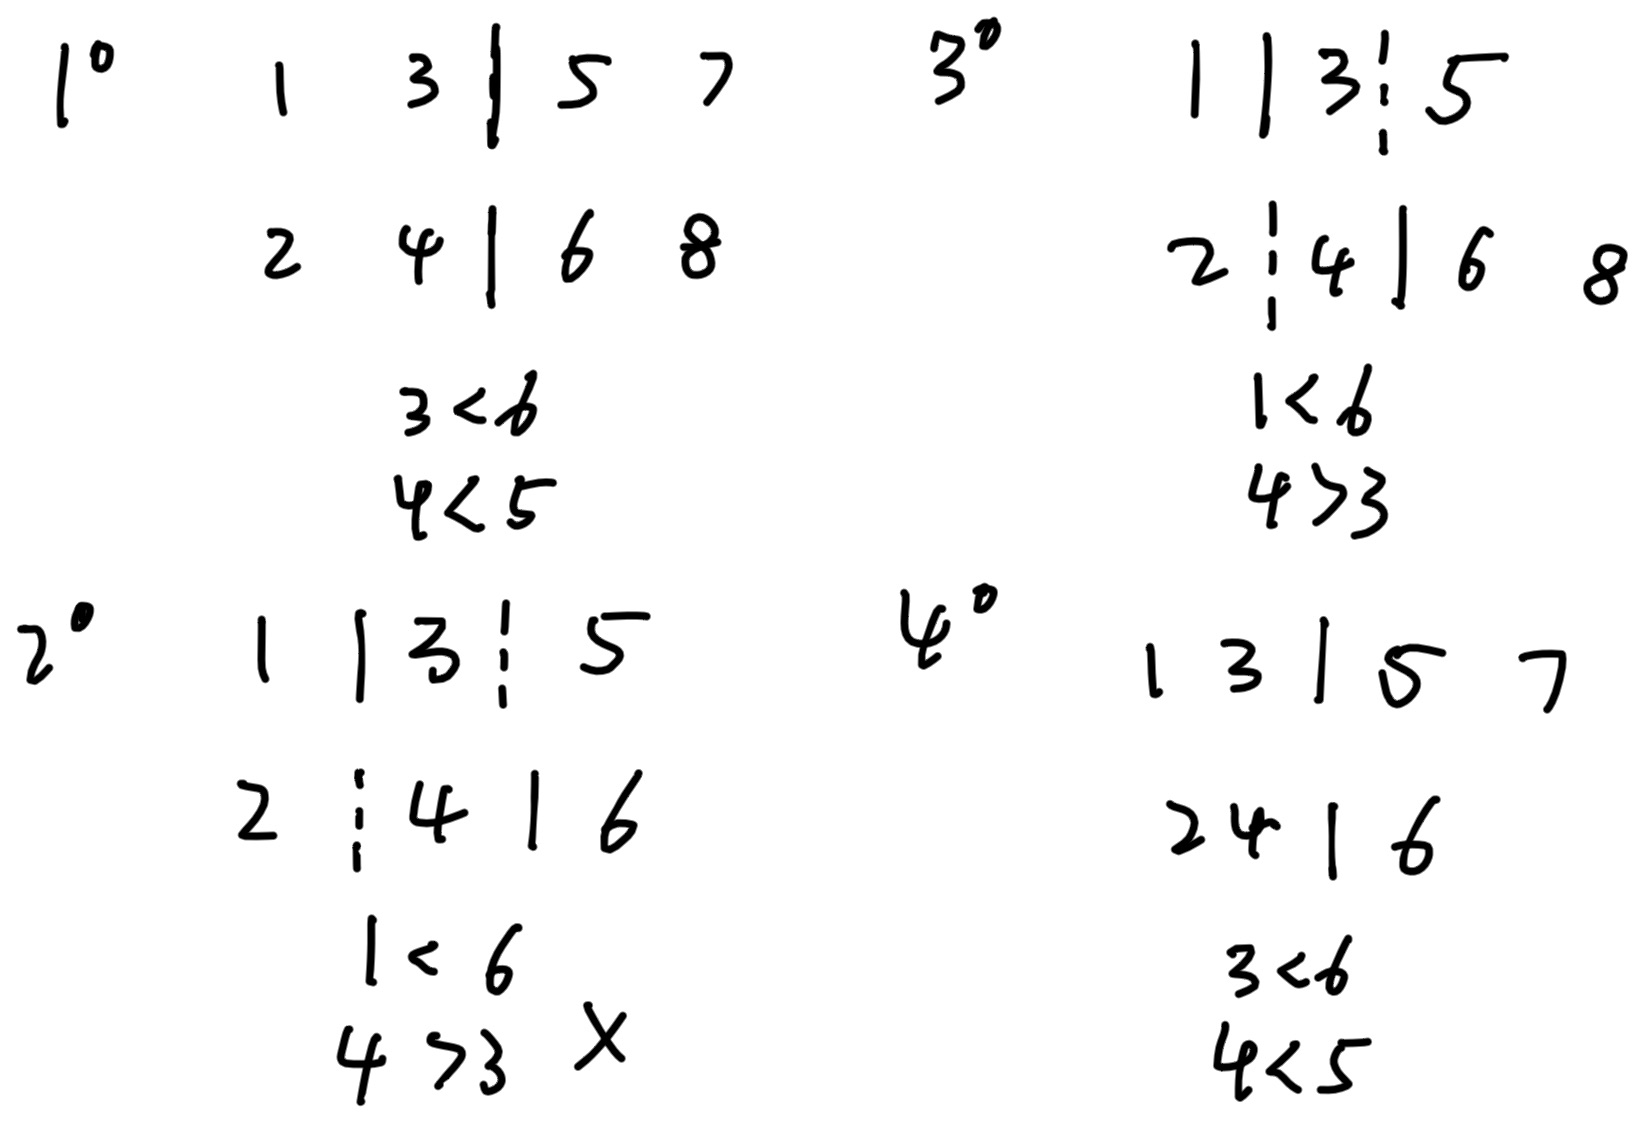 1° 1 3 | 5 7
2 4 | 6 8
3 < 6
4 < 5
2° 1 | 3 ¦ 5
2 ¦ 4 | 6
1 < 6
4 > 3 X
3° 1 | 3 ¦ 5
2 ¦ 4 | 6 8
1 < 6
4 > 3
4° 1 3 | 5 7
2 4 | 6
3 < 6
4 < 5